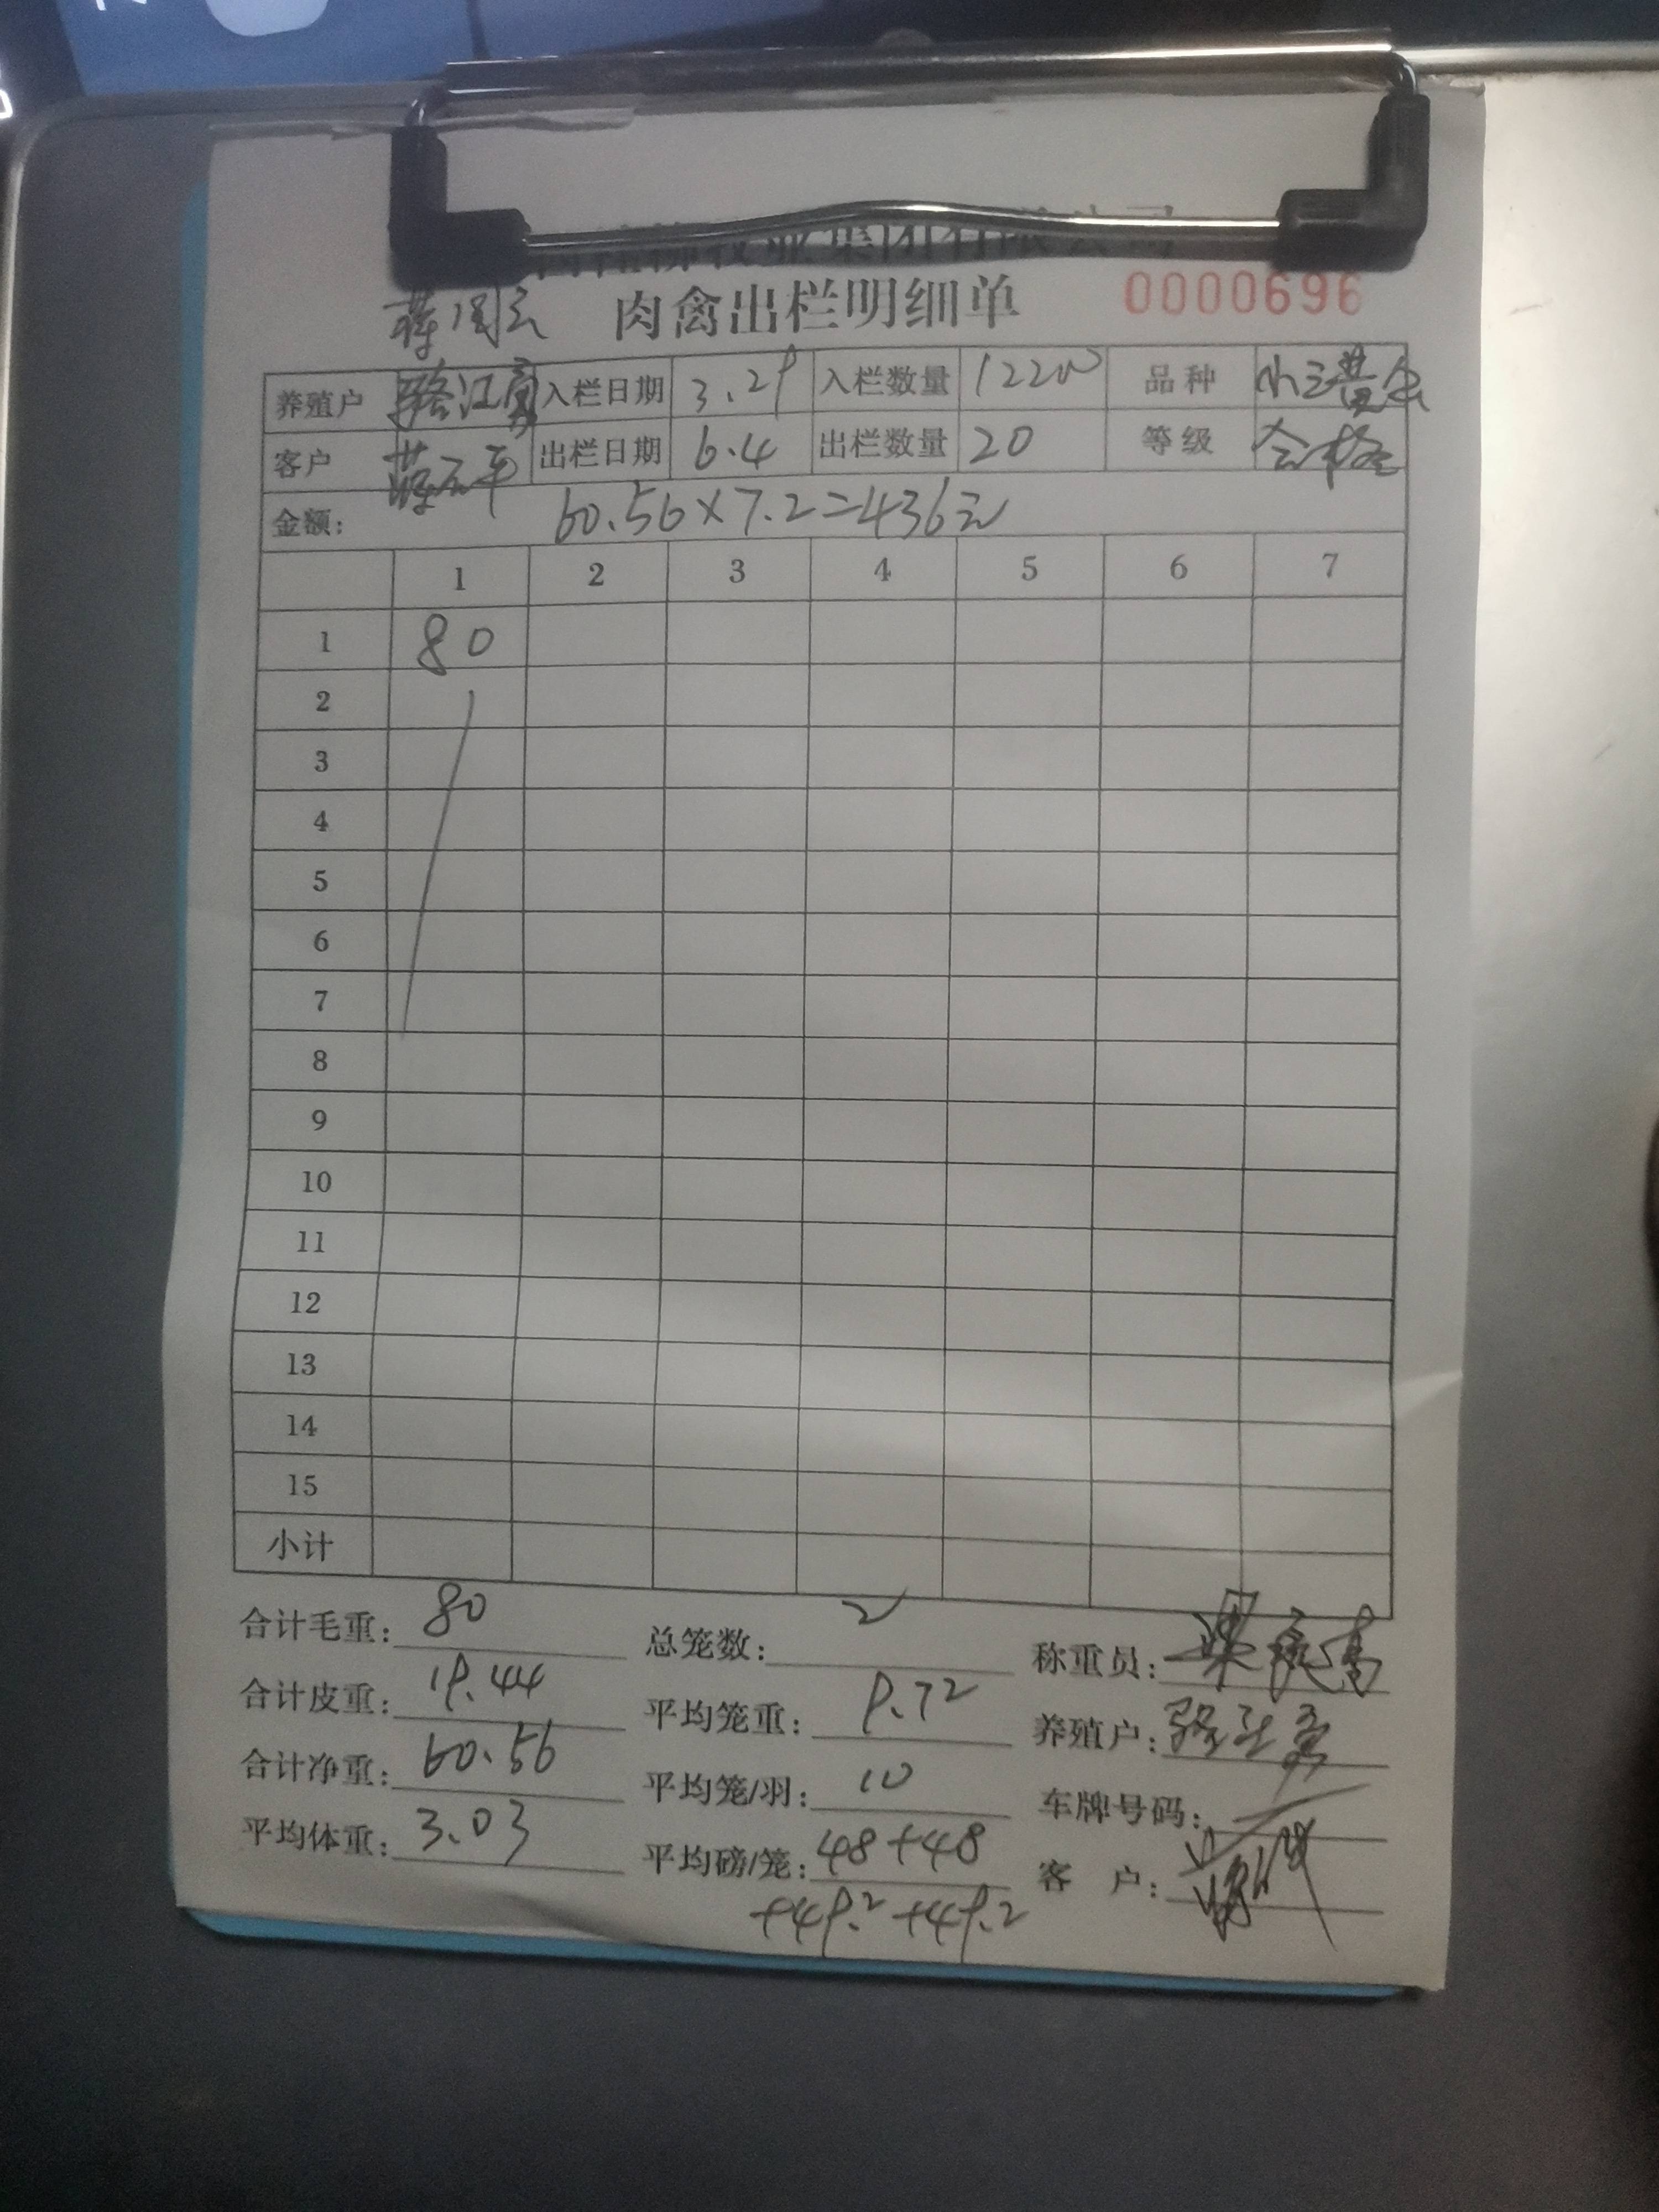 牧业集团有限公司
蒋国云 肉禽出栏明细单 0000696
养殖户 骆江富 入栏日期 3.29 入栏数量 12200 品种 小三黄
客户 蒋云平 出栏日期 6.4 出栏数量 20 等级 合格
金额: 60.56×7.2=436元
1 2 3 4 5 6 7
1 80
2
3
4
5
6
7
8
9
10
11
12
13
14
15
小计
合计毛重: 80 总笼数: 2 称重员:
合计皮重: 19.44 平均笼重: 9.72 养殖户:
合计净重: 60.56 平均笼/羽: 10 车牌号码:
平均体重: 3.03 平均磅/笼: 48+48 客 户:
+49.2+49.2